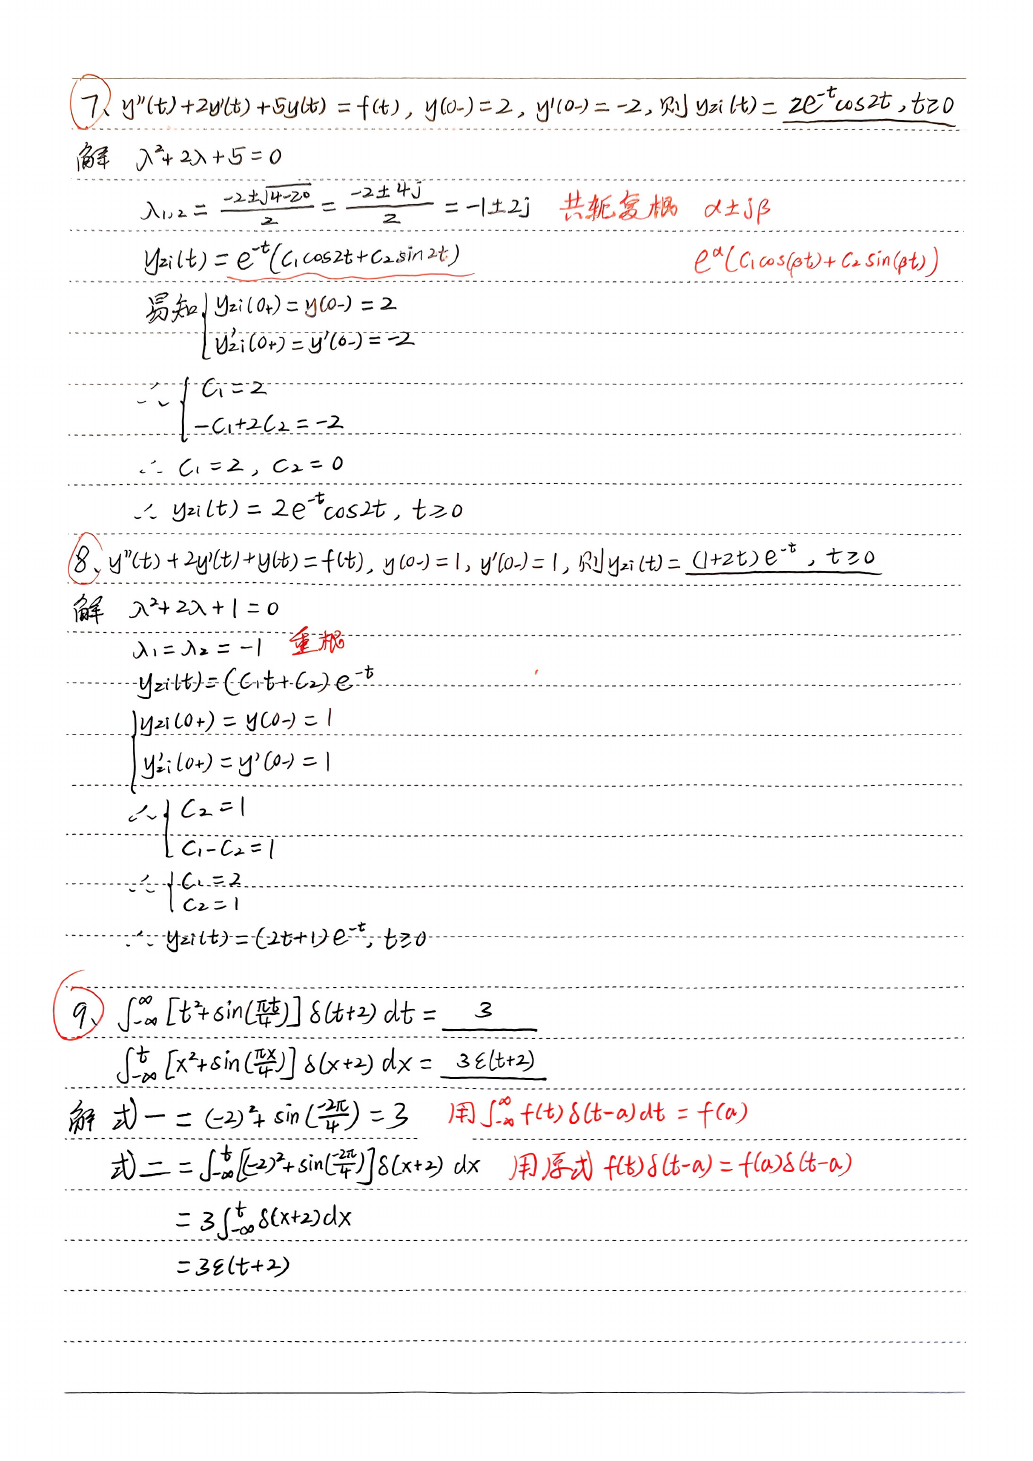 7、y''(t)+2y'(t)+5y(t)=f(t), y(0-)=2, y'(0-)=-2, 则 yzi(t)= 2e^{-t}cos2t, t≥0
解 λ²+2λ+5=0
λ₁,₂ = (-2±√(4-20))/2 = (-2±4j)/2 = -1±2j 共轭复根 α±jβ
yzi(t)=e^{-t}(C₁cos2t+C₂sin2t) e^α(C₁cos(βt)+C₂sin(βt))
易知 { yzi(0+)=y(0-)=2
y'zi(0+)=y'(0-)=-2
∴ { C₁=2
-C₁+2C₂=-2
∴ C₁=2, C₂=0
∴ yzi(t)=2e^{-t}cos2t, t≥0
8、y''(t)+2y'(t)+y(t)=f(t), y(0-)=1, y'(0-)=1, 则 yzi(t)= (1+2t)e^{-t}, t≥0
解 λ²+2λ+1=0
λ₁=λ₂=-1 重根
yzi(t)=(C₁t+C₂)e^{-t}
{ yzi(0+)=y(0-)=1
y'zi(0+)=y'(0-)=1
∴ { C₂=1
C₁-C₂=1
∴ { C₁=2
C₂=1
∴ yzi(t)=(2t+1)e^{-t}, t≥0
9、∫_{-∞}^{∞}[t²+sin(πt/4)]δ(t+2)dt= 3
∫_{-∞}^{t}[x²+sin(πx/4)]δ(x+2)dx= 3ε(t+2)
解 式一=(-2)²+sin(-2π/4)=3 用∫_{-∞}^{∞}f(t)δ(t-a)dt=f(a)
式二=∫_{-∞}^{t}[(-2)²+sin(-2π/4)]δ(x+2)dx 用原式 f(t)δ(t-a)=f(a)δ(t-a)
=3∫_{-∞}^{t}δ(x+2)dx
=3ε(t+2)